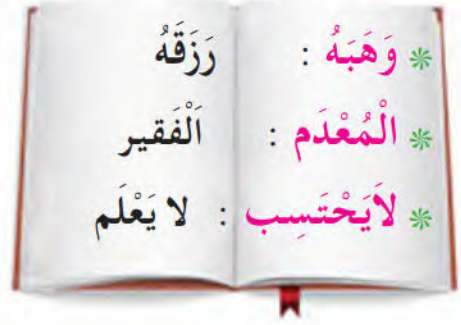 * وَهَبَهُ : رَزَقَهُ
* الْمُعْدَم : اَلْفَقير
* لاَيَحْتَسِب : لا يَعْلَم